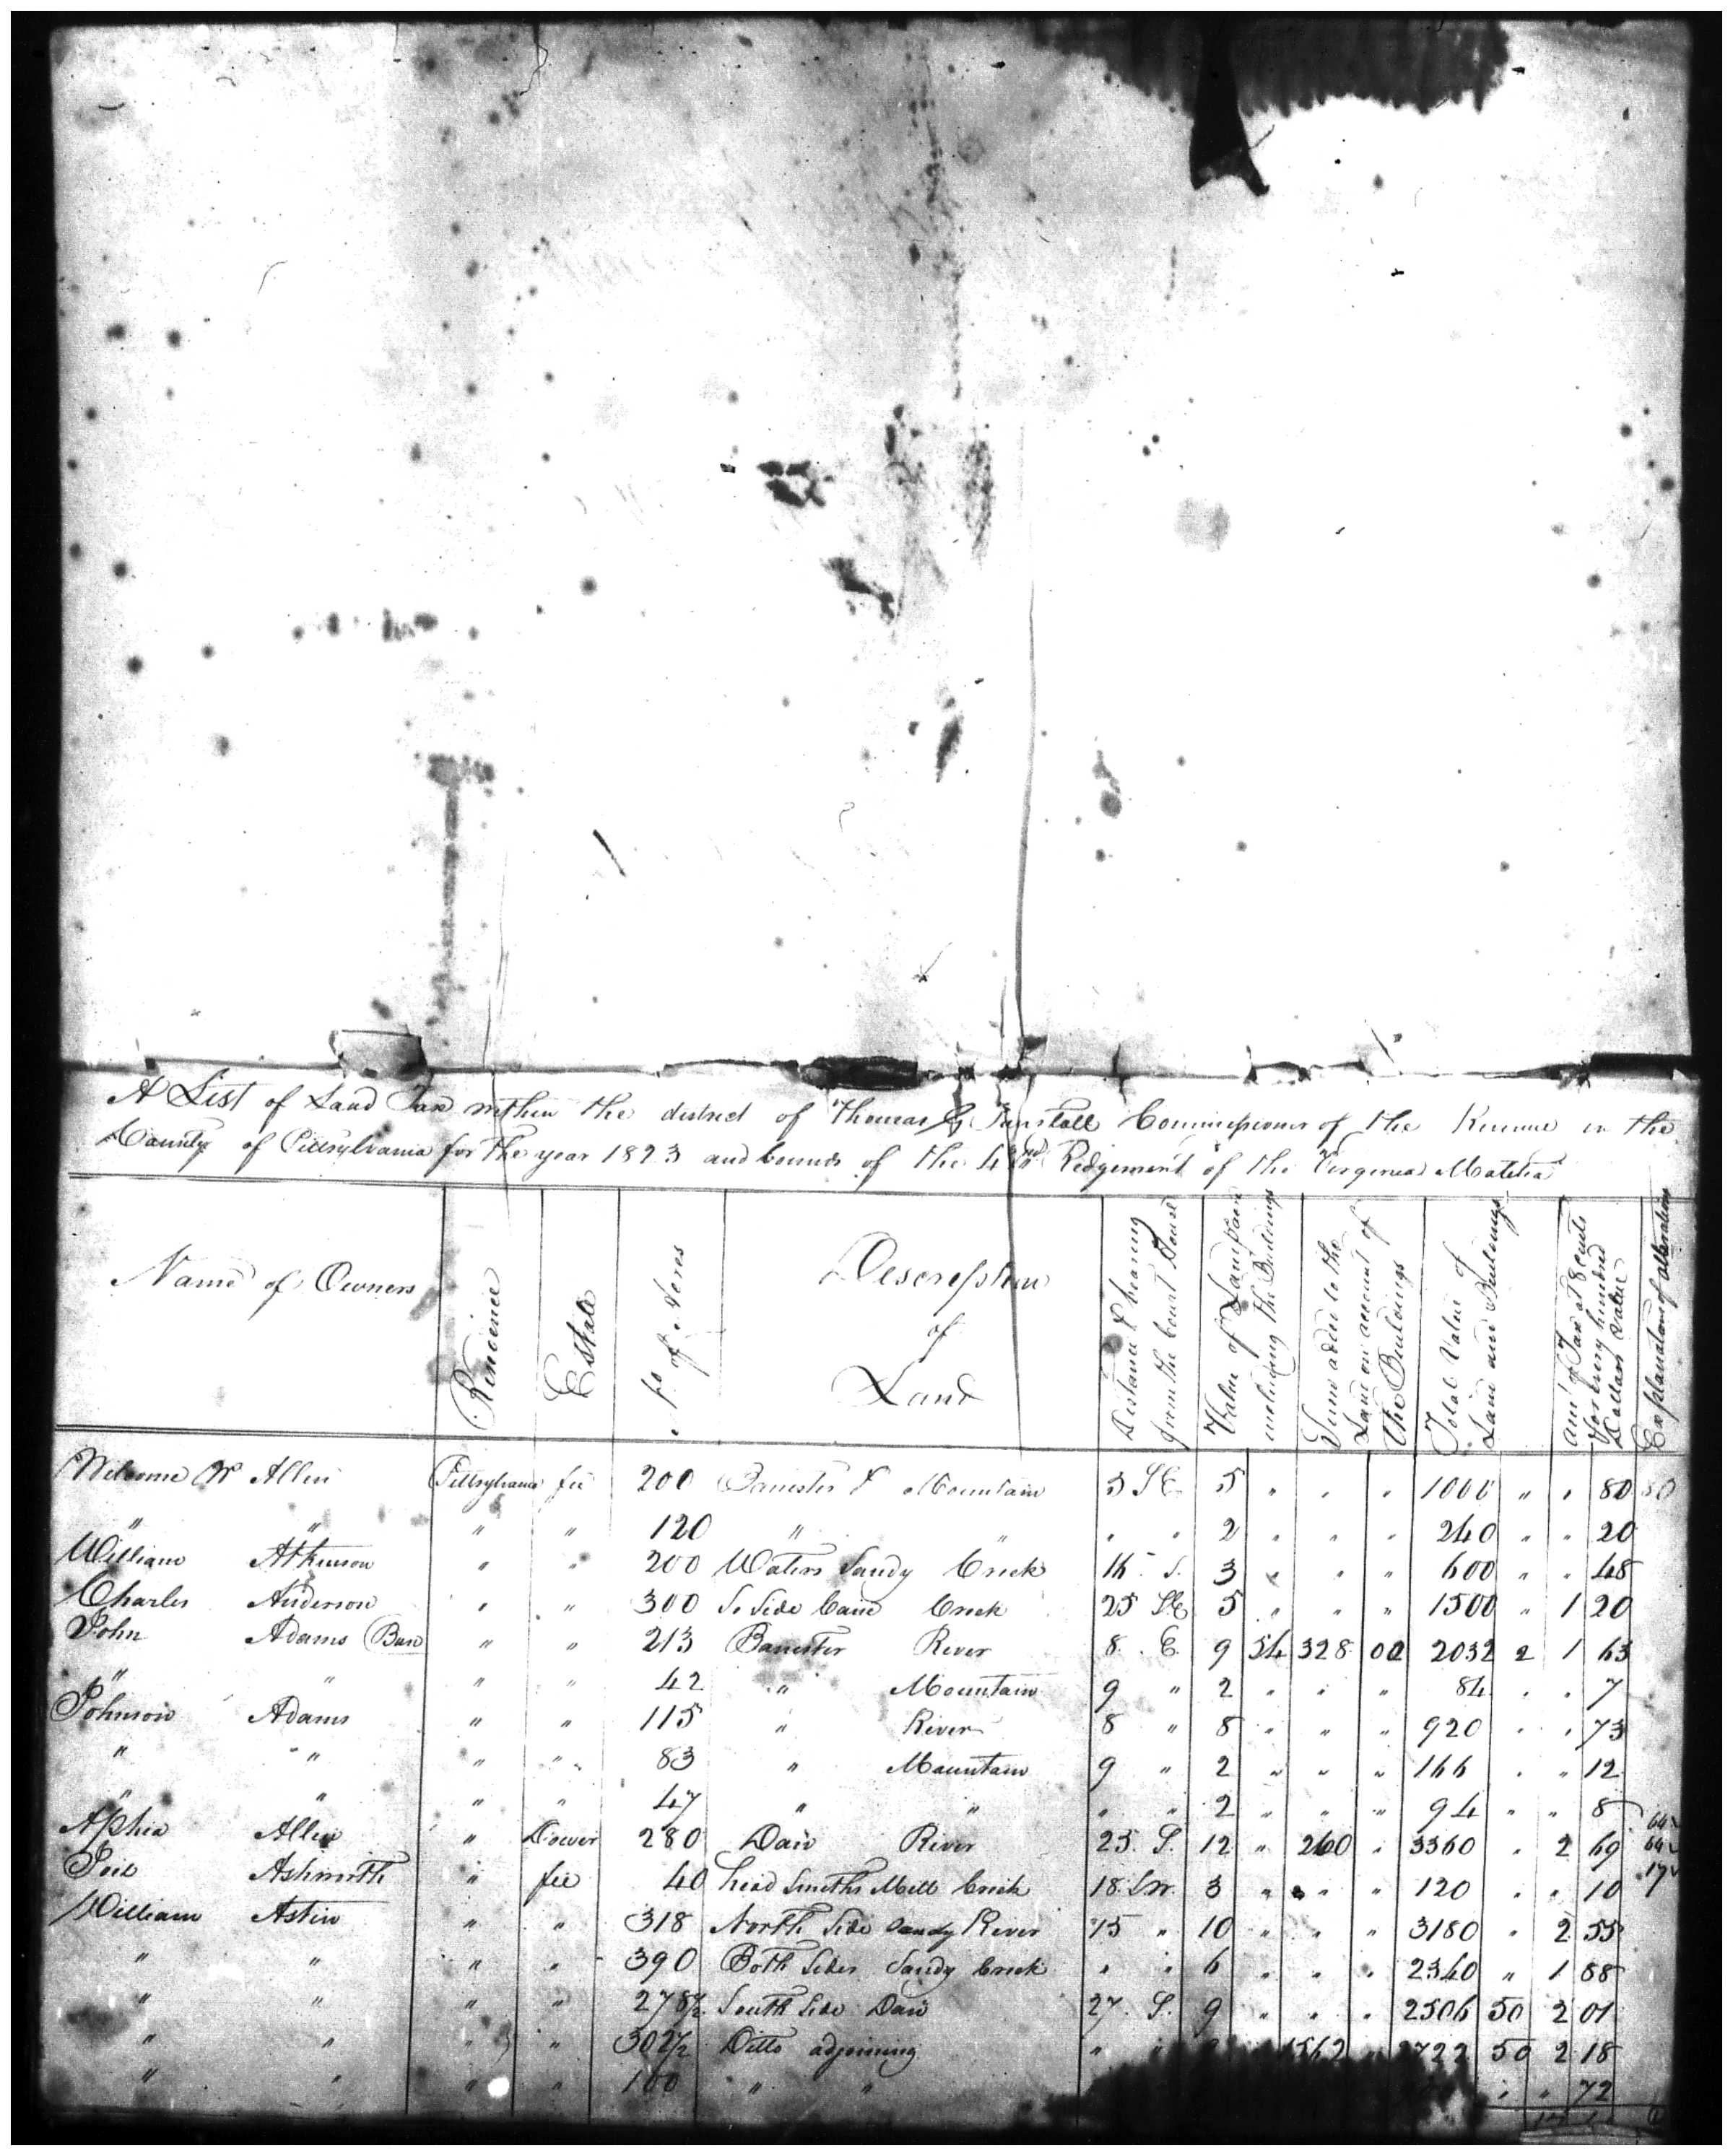 A List of Land Tax within the district of Thomas G Tunstall Commissioner of the Revenue in the
County of Pittsylvania for the year 1823 and bounds of the 42nd Ridgement of the Virginia Malitia
Name of Owners Residence Estate No. of Acres Description of Land Distance & bearing from the Court House Value of Land pr Acre including the Buildings Sum added to the Land on account of the Buildings Total Value of Land and Buildings Amt of Tax at 8 cents for every hundred Dollars value Explanation of alteration
Welcome W Allen Pittsylvania fee 200 Banester & Mountain 3 SE 5 " " " 1000 " " 80 80
" " " " 120 " " " " 2 " " " 240 " " 20
William Atkinson " " 200 Waters Sandy Creek 16 S. 3 " " " 600 " " 48
Charles Anderson " " 300 So Side Cane Creek 25 SE 5 " " " 1500 " 1 20
John Adams (Ban " " 213 Banester River 8 E. 9 54 328 00 2032 2 1 63
" " " " 42 " Mountain 9 " 2 " " " 84 " " 7
Johnson Adams " " 115 " River 8 " 8 " " " 920 " " 73
" " " " 83 " Mountain 9 " 2 " " " 166 " " 12
" " " " 47 " " " " 2 " " " 94 " " 8
Aphia Allen " Dower 280 Dan River 25 S. 12 " 260 " 3360 " 2 69
Ashworth " fee 40 head Smiths Mill Creek 18 SW. 3 " " " 120 " " 10
William Astin " " 318 North Side Sandy River 15 " 10 " " " 3180 " 2 55
" " " " 390 Both Sides Sandy Creek " " 6 " " " 2340 " 1 88
" " " " 278 1/2 South Side Dan 27 S. 9 " " " 2506 50 2 01
" " " " 302 1/2 Ditto adjoining " " 1562 2722 50 2 18
" " " " 100 " " " " 72